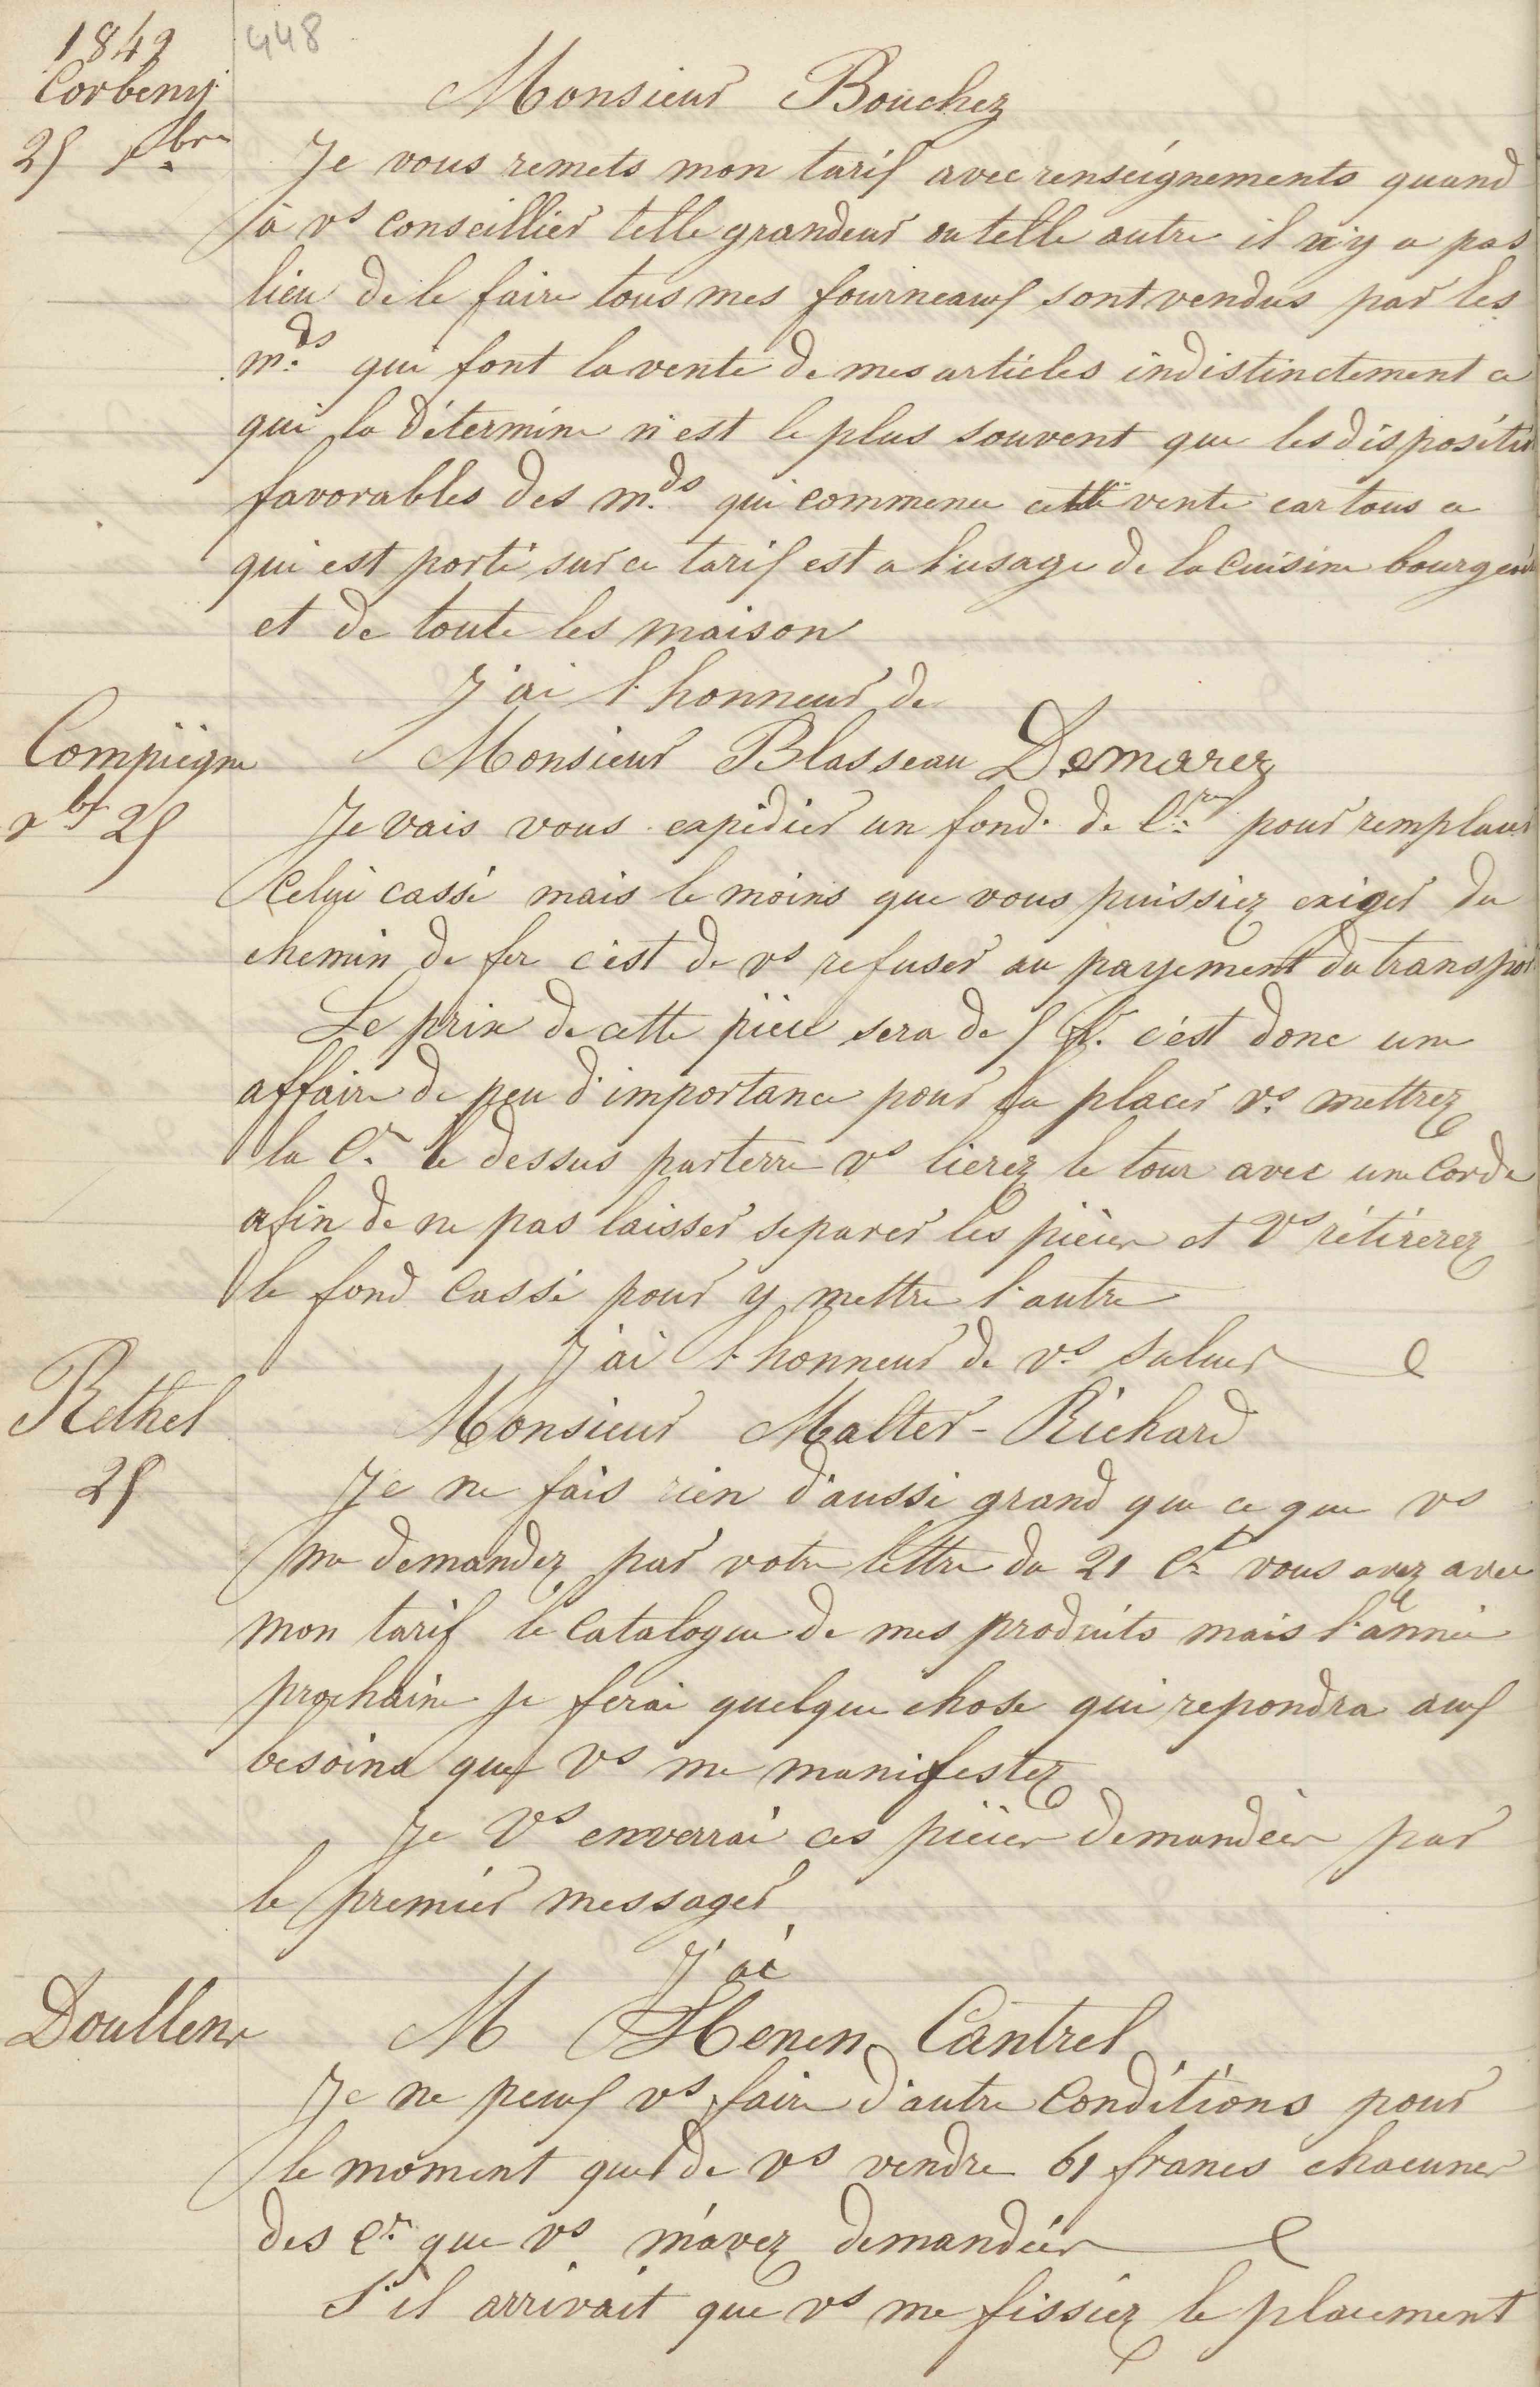 1849
448
Corbeny
25 Xbre
Monsieur Bouchez
Je vous remets mon tarif avec renseignements quand
à vs conseillier telle grandeur ou telle autre il n'y a pas
lieu de le faire tous mes fourneaux sont vendus par les
mds qui font la vente de mes articles indistinctement ce
qui la détermine n'est le plus souvent que les dispositio
favorables des mds qui commence cette vente car tous ce
qui est porté sur ce tarif est a l'usage de la cuisine bourgeoi
et de toute les maison
J'ai l'honneur de
Compiègne
Xbre 25
Monsieur Blasseau Demarez
Je vais vous expédier un fond de Cre pour remplacer
celui cassé mais le moins que vous puissiez exiger du
chemin de fer c'est de vs refuser au payement du transpor
Le prix de cette pièce sera de 5 fr. c'est donc une
affaire de peu d'importance pour la placer vs mettrez
la Cre le dessus parterre vs lierez le tour avec une corde
afin de ne pas laisser separer les pièces et vs rétirerez
le fond cassé pour y mettre l'autre
J'ai l'honneur de vs saluer
Rethel
25
Monsieur Malter-Richard
Je ne fais rien d'aussi grand que ce que vs
me demandez par votre lettre du 21 Ct vous avez avec
mon tarif le catalogue de mes produits mais l'année
prochaine je ferai quelque chose qui repondra aux
besoins que vs me manifestez
Je vs enverrai ces pièces demandées par
le premier messager
J'ai
Doullens
M Henen Cantrel
Je ne peux vs faire d'autre conditions pour
le moment que de vs vendre 61 francs chacunes
des Cre que vs m'avez demandées
S'il arrivait que vs me fissiez le placement